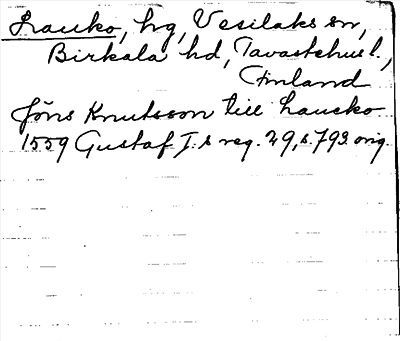 Lauko, hg, Vesilaks sn,
Birkala hd, Tavastehus l.,
Finland
Jöns Knutsson till Laucko
1559 Gustaf I.s reg. 29, s. 793. orig.